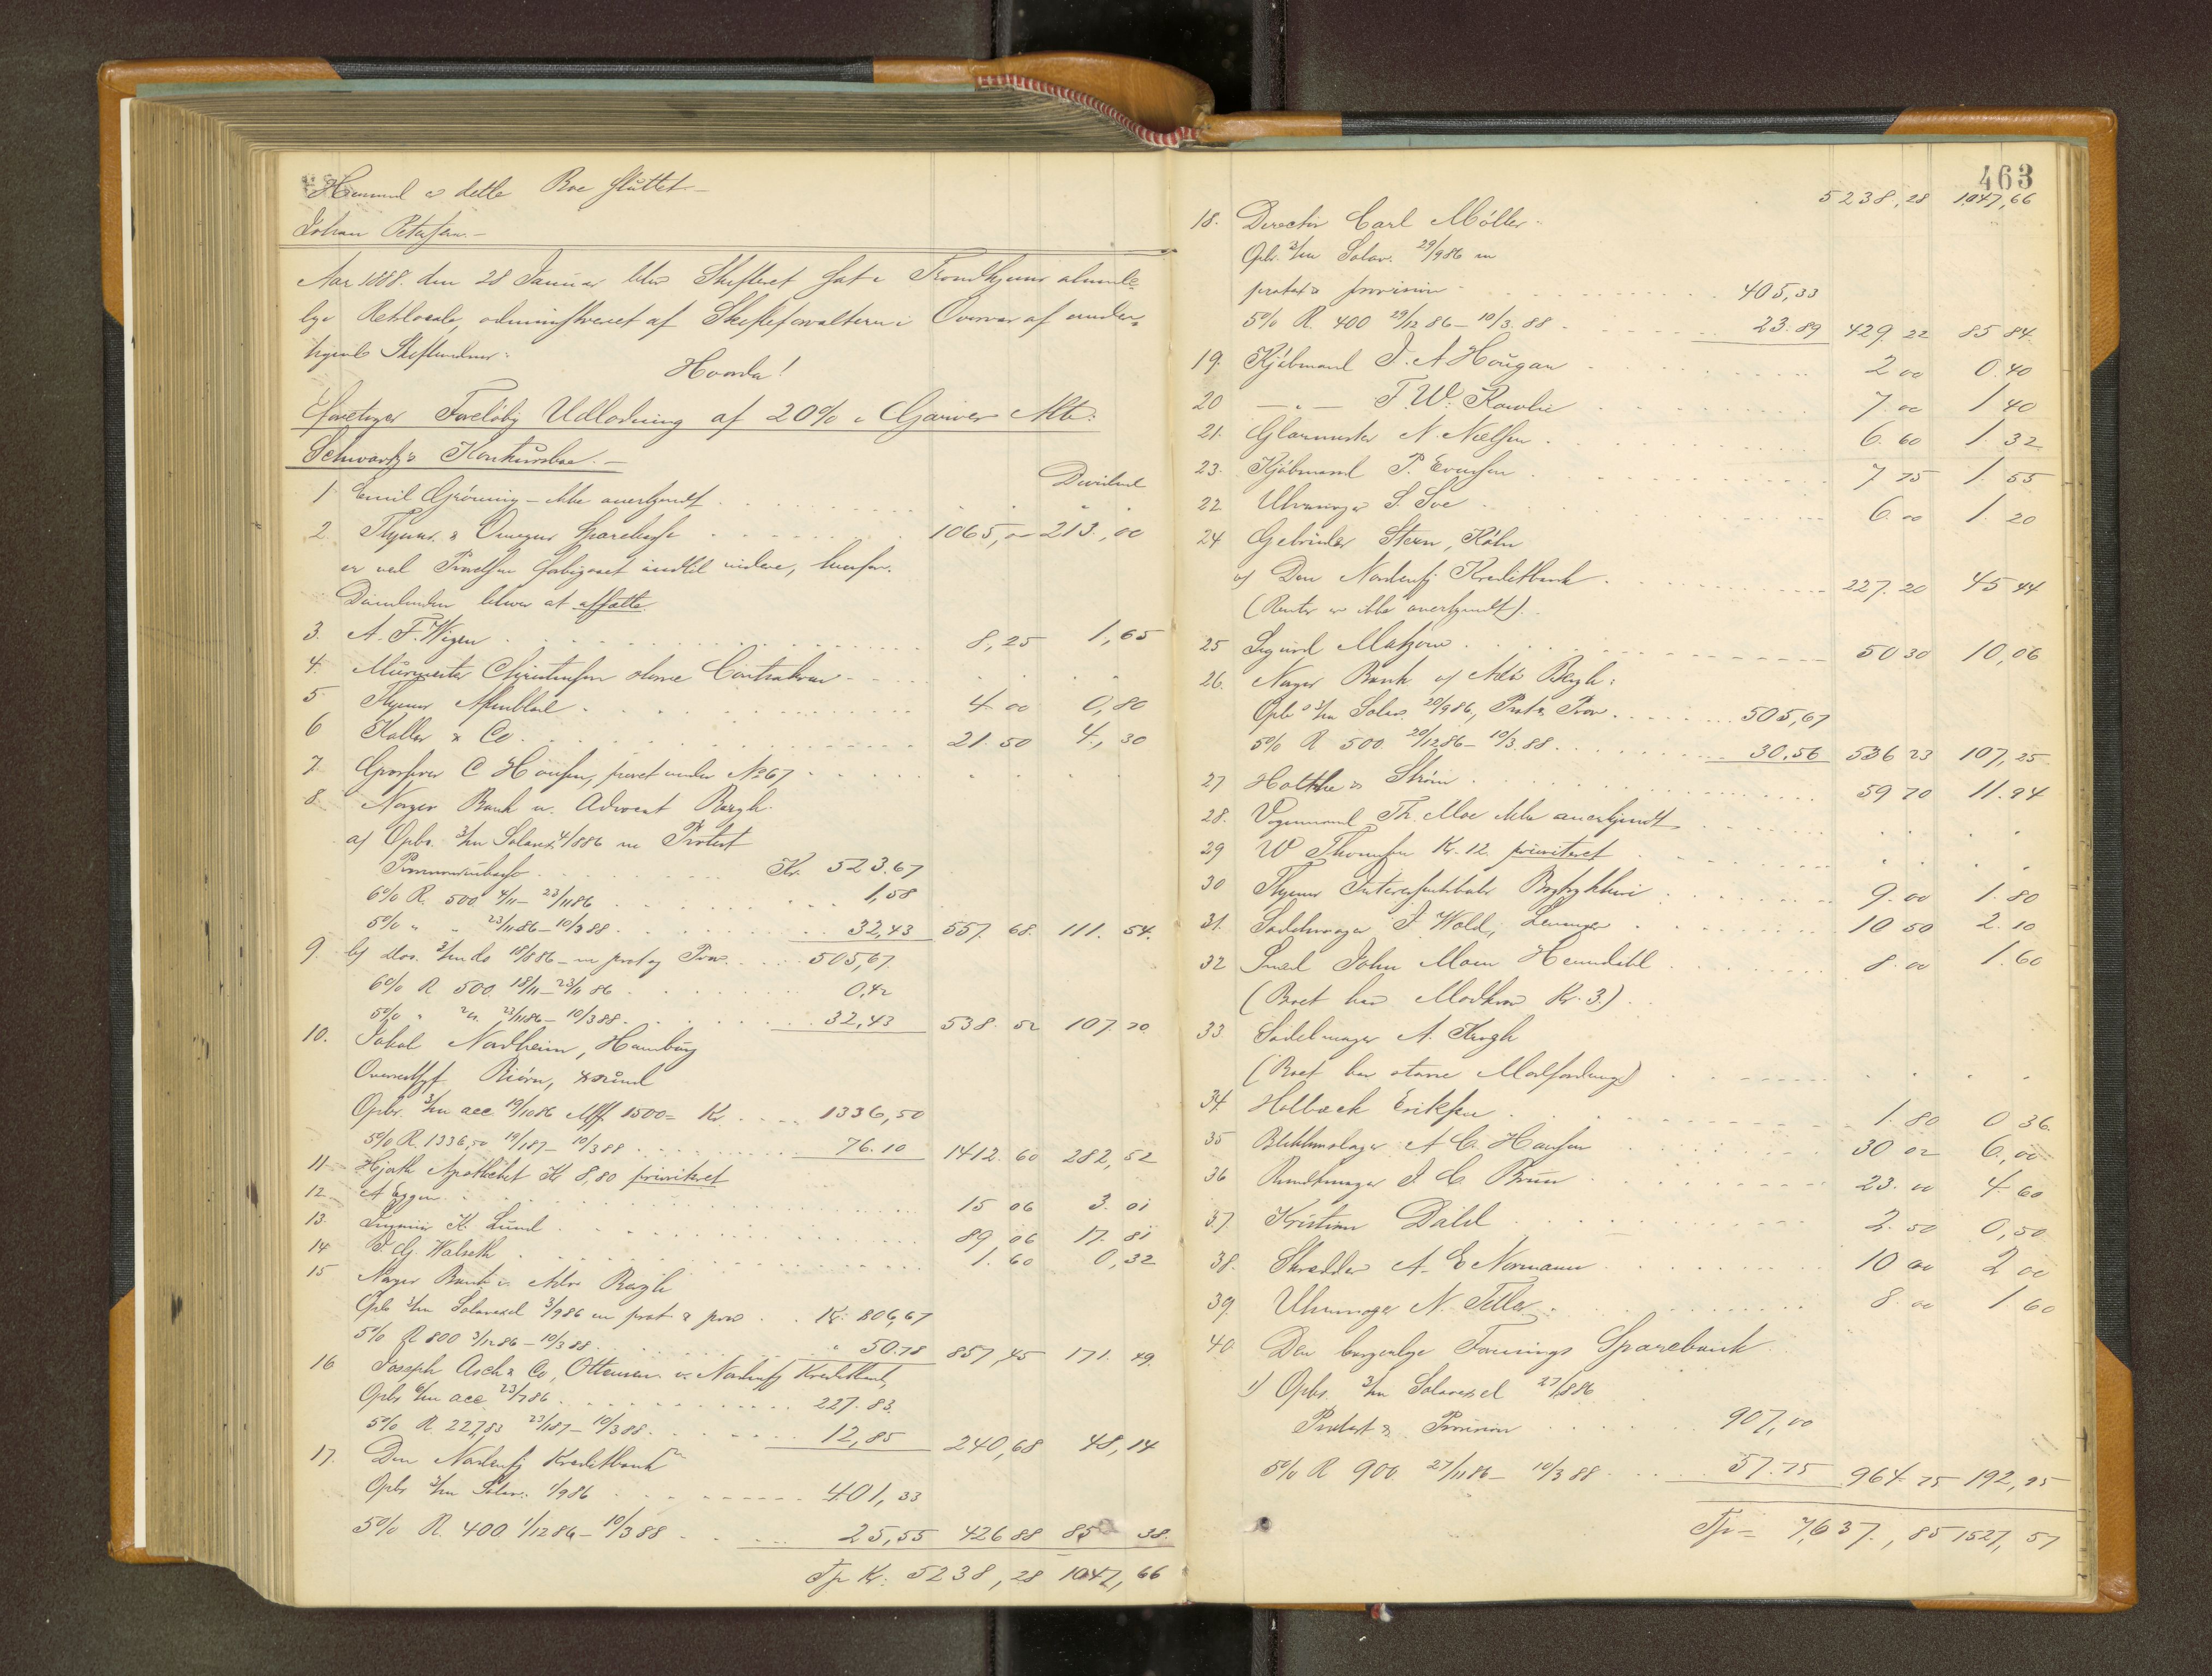 Hermed er dette Boe sluttet.
Johan Petersen.
Aar 1888. den 28 Januar blev Skifteret sat i Trondhjems alminde-
lige Retslocale, administreret af Skifteforvalteren i Overvær af under-
tegnede Skiftevidner:
Hvorda!
foretoges Foreløbig Udlodning af 20% i Garver Mts.
Schwartz's Konkursbo.
Dividend
1. Emil Grönning - ikke anerkjendt
2. Thjems & Omegns Sparekasse 1065,00 213,00
er ved Privatson forbigaaet indtil videre, hvorfor
Dividenden bliver at affatte
3. A. F. Wigen 8,25 1,65
4. Murmester Christensen större Contrakrav
5 Thjems Aftenblad 4 00 0,80
6 Kaller & Co. 21.50 4,30
7. Grosserer C Hansen, prioret under No 67
8. Norges Bank v. Advocat Bergh.
a) Opbr. 3/m Solavx 4/886 m Protest
Kr. 523.67
6% R. 500 4/11 - 23/1186 1,58
5% " " 23/1186 - 10/3 88. 32,43 557. 68. 111. 54.
9. b) do. 3/m do 18/886 - m prot og Prov. 505,67
6% R 500. 18/11 - 23/11 86 0,42
5% " " 23/1186 - 10/388. 32,43 538. 52 107. 70
10. Jakob Nordheim, Hamburg
Opbr. 3/m acc 19/1086 Mff. 1500 = Kr. 1336,50
5% R. 1336,50 19/187 - 10/388 76.10 1412. 60 282,52
11 Hjorth Apotheket Kr 8,80 prioriteret
12 A Eggen 15 06 3. 01
13. Ingeniör K. Lund 89 06 17. 81
14 J. G. Walseth 1. 60 0,32
15 Norges Bank v. Adv. Bergh
Opbr 3/m Solavexel 3/986 m prot & prov Kr. 806,67
5% R 800 3/1286 - 10/388. " 50.78 857,45 171. 49.
16 Joseph Asch & Co, Ottensen v. Nordenfj Kreditbank,
Opbr 6/m acc 23/786 227. 83.
5% R. 227,83 23/187 - 10/388. 12,85 240,68 48,14
17. Den Nordenfj Kreditbank
Opbr 3/m Solav. 1/986 401,33
5% R. 400 1/1286 - 10/388 25,55 426 88 85 38.
Tp Kr. 5238,28 1047,66
463
5238,28 1047,66
18. Director Carl Möller.
Opbr. 3/m Solav. 29/986 m
protest & provision 405,33
5% R. 400 29/12 86 - 10/3 88 23.89 429. 22 85 84.
19. Kjöbmand J. A Hougan 2 00 0.40
20 — " — F. W. Rowlie 7. 00 1 40
21. Glarmester N. Nielsen 6. 60 1. 32
23. Kjöbmand P. Evensen 7 75 1. 55
22 Uhrmager S. Soe 6. 00 1. 20
24 Gebrüder Stern, Köln
v/ Den Nordenfj Kreditbank 227. 20 45 44
(Renter er ikke anerkjendt).
25 Sigurd Matzow 50 30 10,06
26. Norges Bank v/ Adv. Bergh:
Opbr 3/m Solav. 20/986, Prot & Prov 505,67
5% R 500. 20/1286 - 10/3 88. 30.56 536 23 107,25
27 Holthe & Ström 59 70 11.94
28. Vognmand Th. Moe ikke anerkjendt
29 W Thomsen Kr. 12. prioriteret
30 Thjems Interessentskabs Bogtrykkeri 9. 00 1. 80
31. Sadelmager J Wold, Levanger 10 50 2. 10
32 Smed John Moen Heimdahl 8. 00 1. 60
(Boet har Modkrav Kr. 3.)
33 Sadelmager A. Krogh
(Boet har större Modfordring)
34. Holbæck Eriksen 1. 80 0 36.
35 Blikkenslager A C. Hansen 30 02 6,00
36 Bundtmager J. C. Bruun 23. 00 4. 60
37. Kristian Dahl 2. 50 0,50
38. Skrædder A. E Normann 10 00 2 00
39. Uhrmager N. Teller 8. 00 1. 60
40. Den borgerlige Forenings Sparebank
1) Opbr. 3/m Solavexel 27/886
Protest & Provision 907,00
5% R 900. 27/1186 - 10/3 88 57.75 964. 75 192,95
Tp = 7,637,85 1527,57